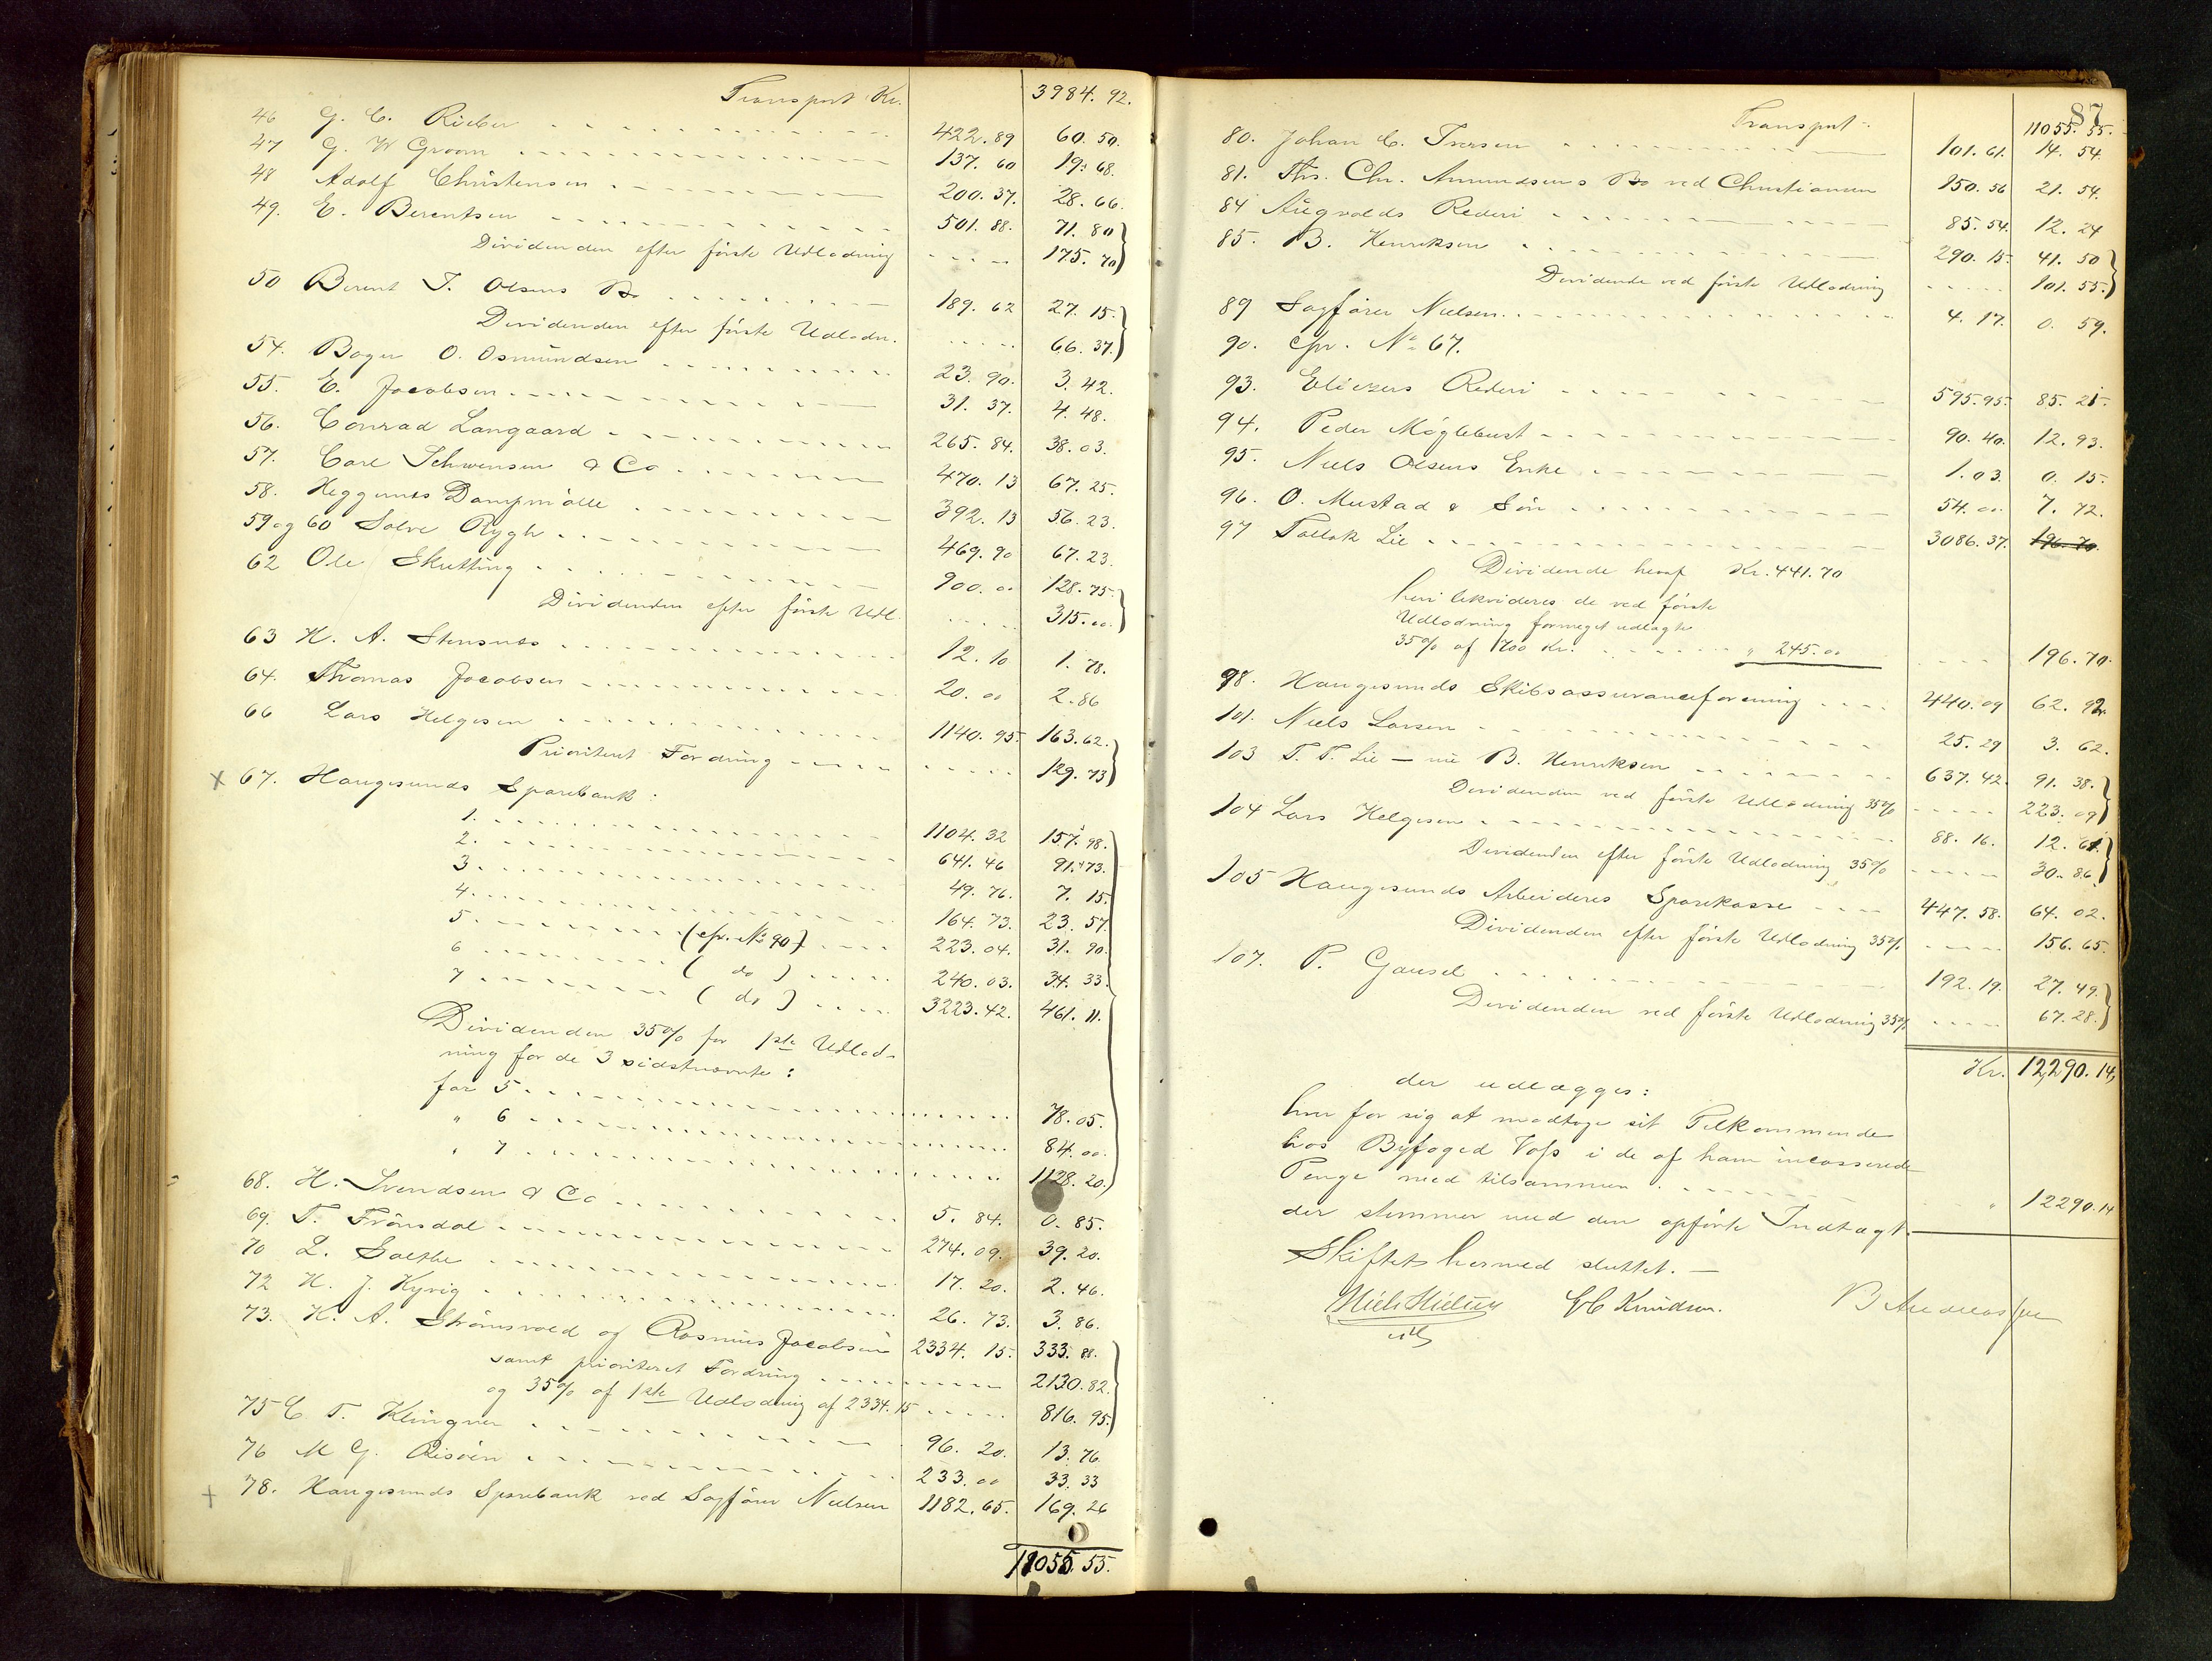 Transport Kr. 3984. 92.
46 G. C. Rieber 422. 89 60. 50.
47 G. W Groom 137. 60 19. 68.
48 Adolf Christensen 200. 37. 28. 66.
49. E. Berentsen 501. 88. 71. 80
Dividenden efter første Udlodning 175. 70
50 Berent T. Olsens Bo 189. 62 27. 15.
Dividenden efter første Udlodn. 66. 37.
54. Boger O. Osmundsen 23. 90. 3. 42.
55. E. Jacobsen 31. 37. 4. 48.
56. Conrad Langaard 265. 84. 38. 03.
57. Carl Schwensen & Co 470. 13 67. 25.
58. Heggenes Dampmølle 392. 13 56. 23.
59 og 60 Solve Rygh 469. 90 67. 23.
62 Ole Skutting 900. 00 128. 75.
Dividenden efter første Udl. 315. 00.
63 H. A. Stensnes 12. 10 1. 78.
64. Thomas Jacobsen 20. 00 2. 86
66 Lars Helgesen 1140. 95. 163. 62.
Prioriteret Fordring 129. 73
x 67. Haugesunds Sparebank:
1. 1104. 32 157. 98.
2. 641. 46 91. 73.
3. 49. 76. 7. 15.
4. 164. 73. 23. 57.
5. (cfr. No 90) 223. 04. 31. 90.
6 ( do ) 240. 03. 34. 33.
7 ( do ) 3223. 42. 461. 11.
Dividenden 35% for 1ste Udlod-
ning for de 3 sidstnævnte:
for 5 78. 05.
" 6 84. 00.
" 7 1128. 20.
68. H. Svendsen & Co 5. 84. 0. 85.
69. T. Frönsdal 274. 09. 39. 20.
70 L. Salthe 17. 20. 2. 46.
72 H. J. Kyvig 26. 73. 3. 86.
73. K. A. Strømsvold og Rasmus Jacobsen 2334. 15. 333. 88.
samt prioriteret Fordring 2130. 82.
og 35% af 1ste Udlodning af 2334. 15 816. 95.
75 C. T. Klingner 96. 20. 13. 76.
76 M G. Risøen 233. 00 33. 33
+ 78. Haugesunds Sparebank ved Sagfører Nielsen 1182. 65. 169. 26
11055. 55.
87
Transport 11055. 55.
80. Johan C. Iversen 101. 61. 14. 54.
81. Ths. Chr. Amundsens Bo ved Christiansen 150. 56 21. 54.
84 Augvalds Rederi 85. 54. 12. 24
85. B. Henriksen 290. 15. 41. 50
Dividende ved første Udlodning 101. 55.
89 Sagfører Nielsen 4. 17. 0. 59.
90. cfr. No 67.
93. Eliezers Rederi 595. 95. 85. 25.
94. Peder Møglebust 90. 40. 12. 93.
95. Niels Olsens Enke 1. 03. 0. 15.
96. O. Mustad & Søn 54. 00. 7. 72.
97 Tollak Lie 3086. 37. 196. 70.
Dividende heraf Kr. 441. 70
heri likvideres de ved første
Udlodning formeget udlagte
35% af 700 Kr. " 245. 00 196. 70.
98. Haugesunds Skibsassuranceforening 440. 09 62. 92.
101. Niels Larsen 25. 29 3. 62.
103 T. T. Lie — nu B. Henriksen 637. 42. 91. 38.
Dividenden ved første Udlodning 35% 223. 09
104 Lars Helgesen 88. 16. 12. 61.
Dividenden efter første Udlodning 35% 30. 86.
105 Haugesunds Arbeideres Sparekasse 447. 58. 64. 02.
Dividenden efter første Udlodning 35% 156. 65.
107. P. Gausel 192. 19. 27. 49.
Dividenden ved første Udlodning 35% 67. 28.
Kr. 12,290. 14,
der udlægges:
hver for sig at modtage sit Tilkommende
hos Byfoged Voss i de af ham incasserede
Penge med tilsammen " 12290. 14
der stemmer med den opførte Indtægt.
Skiftet hermed sluttet. —
Niels Nielsen GC Knudsen. B Andreassen